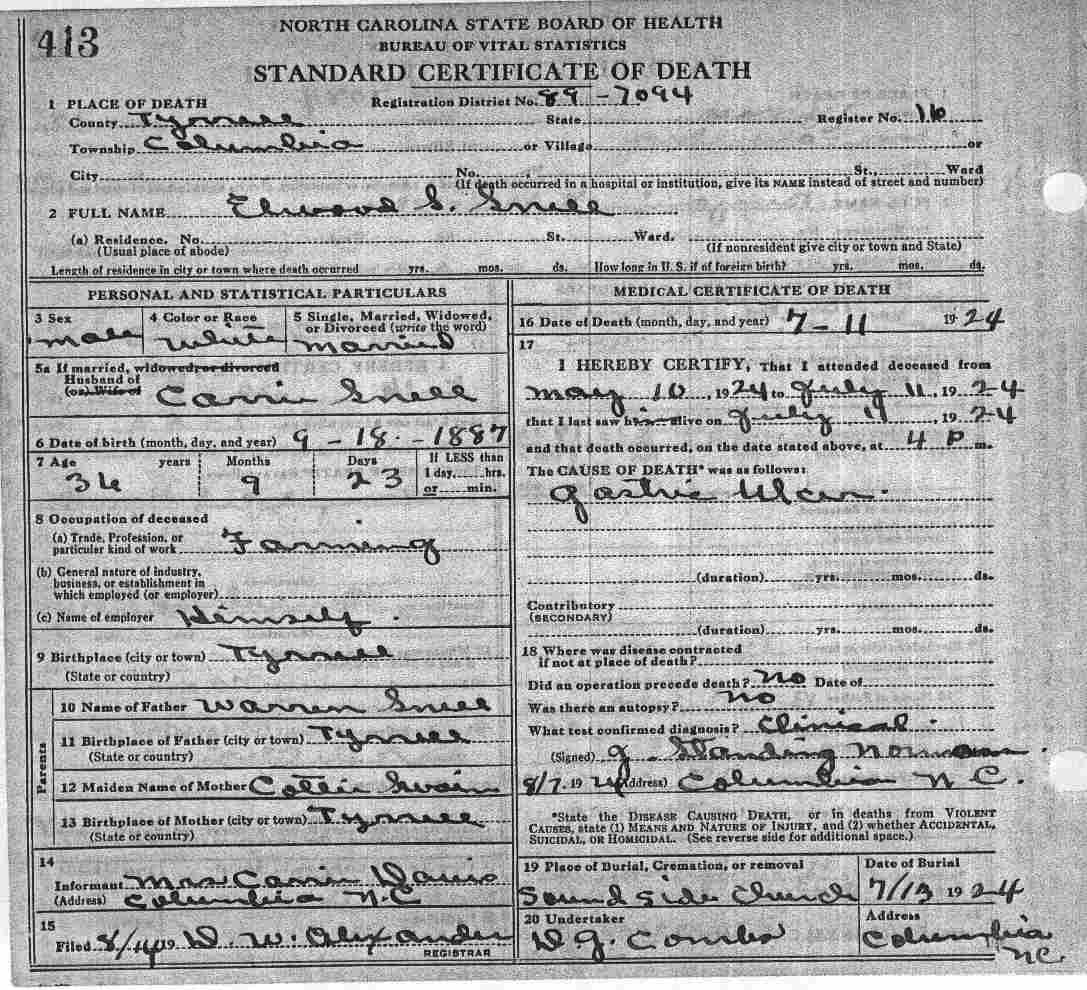 413
NORTH CAROLINA STATE BOARD OF HEALTH
BUREAU OF VITAL STATISTICS
STANDARD CERTIFICATE OF DEATH
1 PLACE OF DEATH Registration District No. 89-7094
County Tyrrell State Register No. 16
Township Columbia or Village or
City No. St., Ward
(If death occurred in a hospital or institution, give its NAME instead of street and number)
2 FULL NAME Elwood S. Snell
(a) Residence. No. St. Ward.
(Usual place of abode) (If nonresident give city or town and State)
Length of residence in city or town where death occurred yrs. mos. ds. How long in U. S. if of foreign birth? yrs. mos. ds.
PERSONAL AND STATISTICAL PARTICULARS
3 Sex 4 Color or Race 5 Single, Married, Widowed,
or Divorced (write the word)
male White married
5a If married, widowed, or divorced
Husband of
(or) Wife of Carrie Snell
6 Date of birth (month, day, and year) 9-18-1887
7 Age years Months Days If LESS than
1 day, hrs.
or min.
36 9 23
8 Occupation of deceased
(a) Trade, Profession, or
particular kind of work Farming
(b) General nature of industry,
business, or establishment in
which employed (or employer)
(c) Name of employer Himself.
9 Birthplace (city or town) Tyrrell
(State or country)
Parents
10 Name of Father Warren Snell
11 Birthplace of Father (city or town) Tyrrell
(State or country)
12 Maiden Name of Mother Cottie Swain
13 Birthplace of Mother (city or town) Tyrrell
(State or country)
14
Informant Mrs Carrie Davis
(Address) Columbia N.C
15
Filed 8/14 19 D. W. Alexander
REGISTRAR
MEDICAL CERTIFICATE OF DEATH
16 Date of Death (month, day, and year) 7-11 1924
17
I HEREBY CERTIFY, That I attended deceased from
May 10, 1924 to July 11, 1924
that I last saw him alive on July 11, 1924
and that death occurred, on the date stated above, at 4 P m.
The CAUSE OF DEATH* was as follows:
Gastric Ulcer.
(duration) yrs. mos. ds.
Contributory
(SECONDARY)
(duration) yrs. mos. ds.
18 Where was disease contracted
if not at place of death?
Did an operation precede death? No Date of
Was there an autopsy? No
What test confirmed diagnosis? Clinical.
(Signed) J. Standing Norman.
8/7. 1924 (Address) Columbia N C.
*State the DISEASE CAUSING DEATH, or in deaths from VIOLENT
CAUSES, state (1) MEANS AND NATURE OF INJURY, and (2) whether ACCIDENTAL,
SUICIDAL, OR HOMICIDAL. (See reverse side for additional space.)
19 Place of Burial, Cremation, or removal Date of Burial
Sound Side Church 7/13 1924
20 Undertaker Address
D G. Combs Columbia
NC.